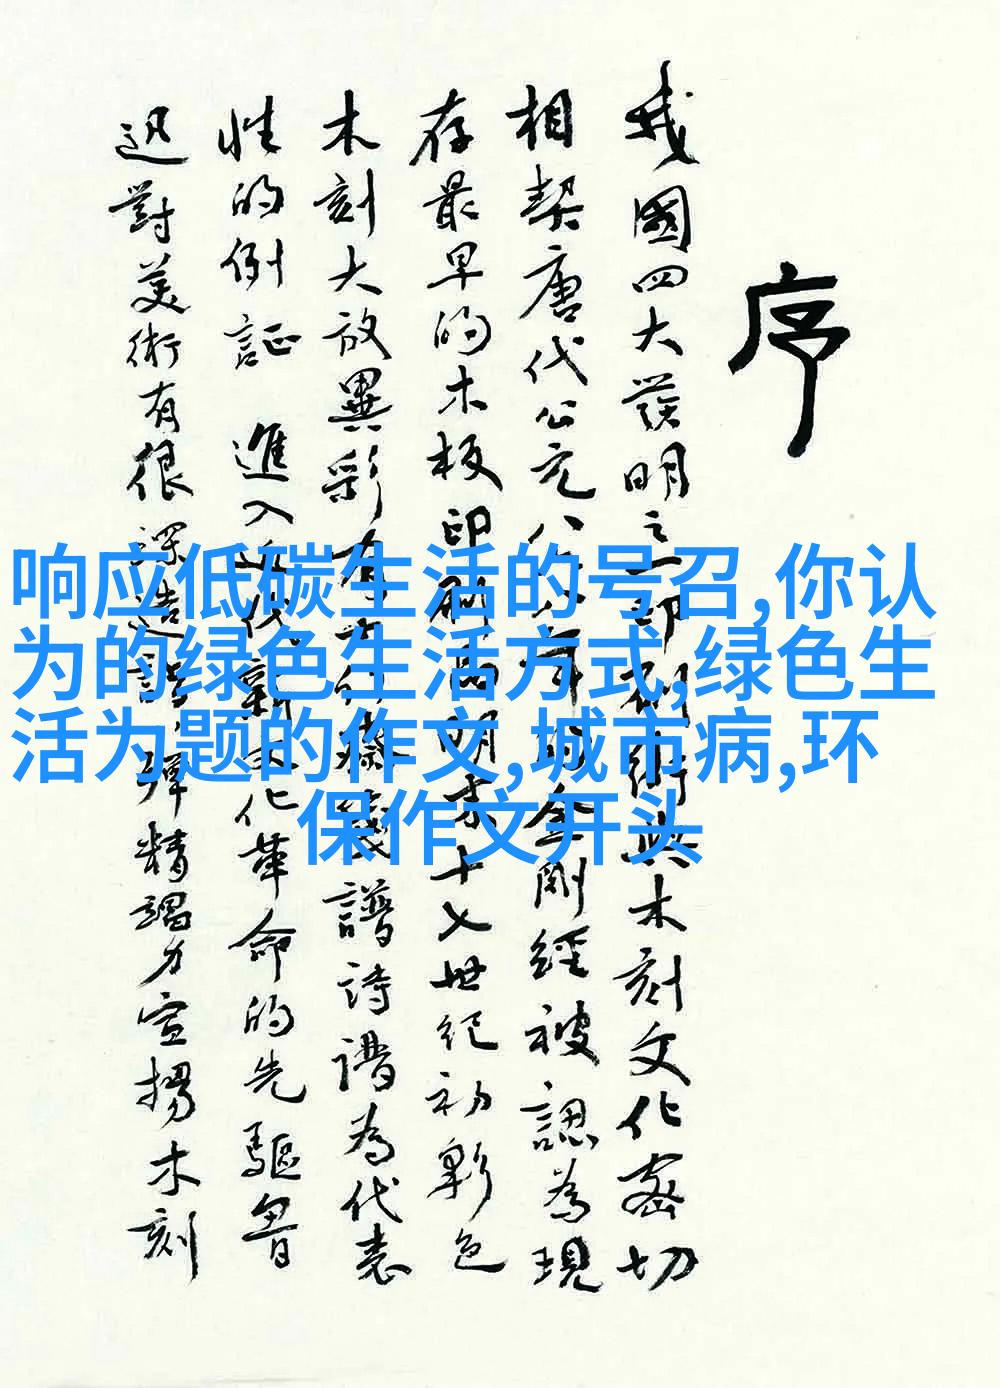 序
我國四大發明之一印刷術與木刻文化密切
相契唐代公元八六八年的金剛經被認為現
存最早的木板印刷品明末十七世紀初彩色
木刻大放異彩有
譜詩譜為代表
性的例証 進入近代新文化革命的先驅魯
迅對美術有很深造詣殫精竭力宣揚木刻
响应低碳生活的号召,你认
为的绿色生活方式,绿色生
活为题的作文,城市病,环
保作文开头